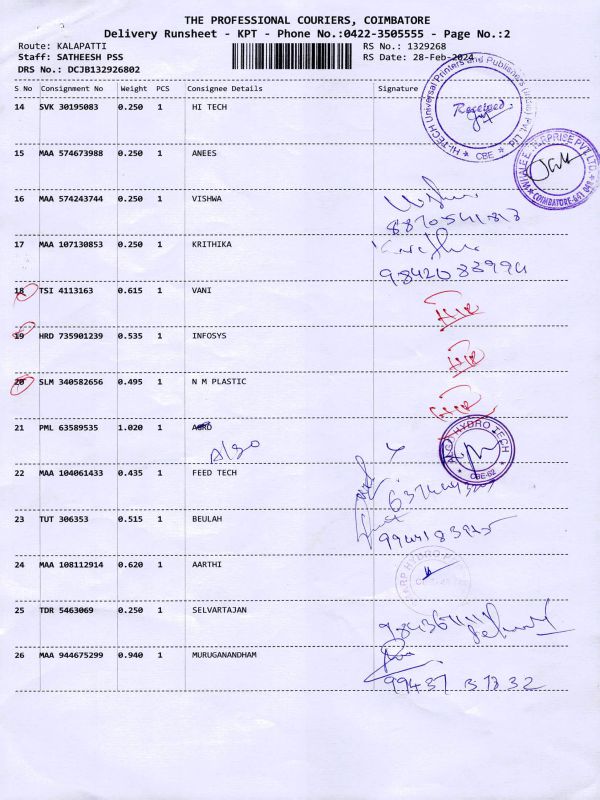 THE PROFESSIONAL COURIERS, COIMBATORE
Delivery Runsheet - KPT - Phone No.:0422-3505555 - Page No.:2
Route: KALAPATTI
RS No.: 1329268
Staff: SATHEESH PSS
RS Date: 28-Feb-2024
DRS No.: DCJB132926802
S No Consignment No Weight PCS Consignee Details Signature
14 SVK 30195083 0.250 1 HI TECH
HI-TECH Universal Printers and Publishers (India) Pvt. Ltd. CBE
Received
15 MAA 574673988 0.250 1 ANEES
COIMBATORE-641
16 MAA 574243744 0.250 1 VISHWA
17 MAA 107130853 0.250 1 KRITHIKA
9842083994
18 TSI 4113163 0.615 1 VANI
19 HRD 735901239 0.535 1 INFOSYS
20 SLM 340582656 0.495 1 N M PLASTIC
21 PML 63589535 1.020 1
Algo
HYDRO TECH
CBE-62
22 MAA 104061433 0.435 1 FEED TECH
23 TUT 306353 0.515 1 BEULAH
24 MAA 108112914 0.620 1 AARTHI
25 TDR 5463069 0.250 1 SELVARTAJAN
26 MAA 944675299 0.940 1 MURUGANANDHAM